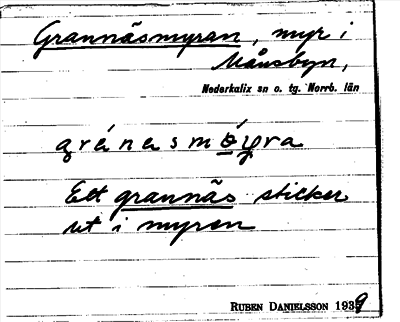 Grannäsmyran, myr i
Månsbyn,
Nederkalix sn o. tg. Norrb. län
Ett grannäs sticker
ut i myren
RUBEN DANIELSSON 1939